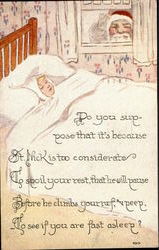 Do you sup-
pose that it's because
St. Nick is too considerate
To spoil your rest, that he will pause
Before he climbs your roof & peep,
To see if you are fast asleep?